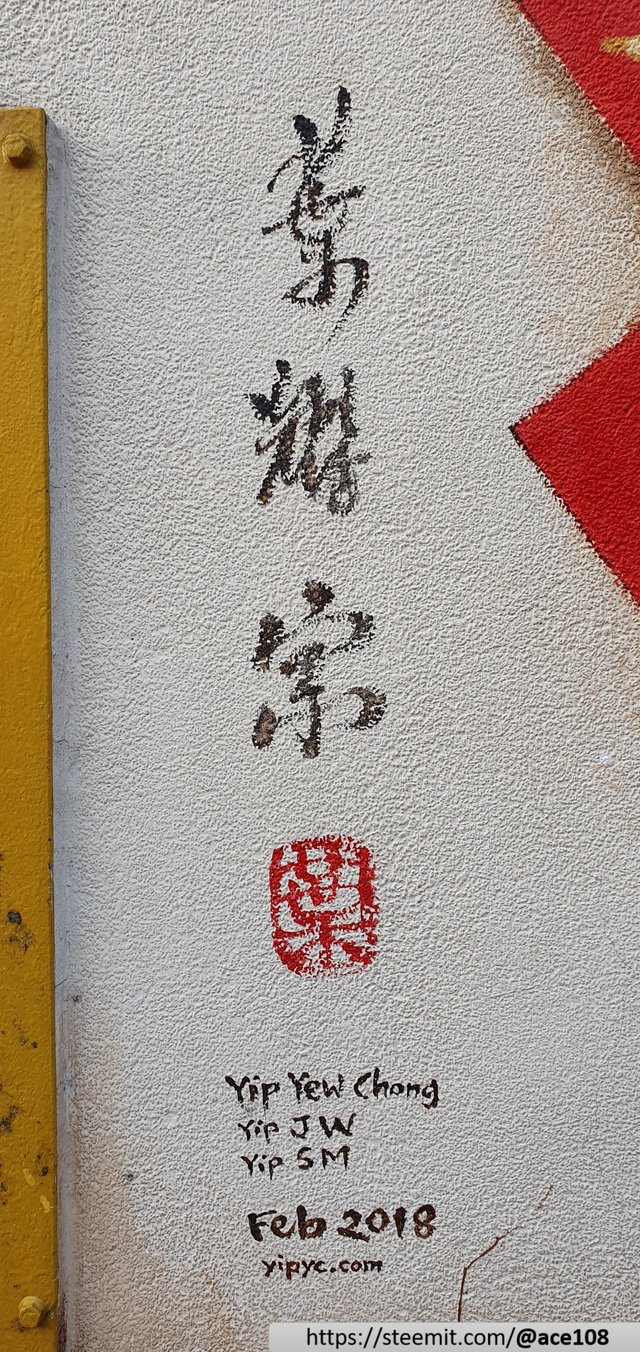 葉
耀
宗
葉
Yip Yew Chong
Yip JW
Yip SM
Feb 2018
yipyc.com
https://steemit.com/@ace108